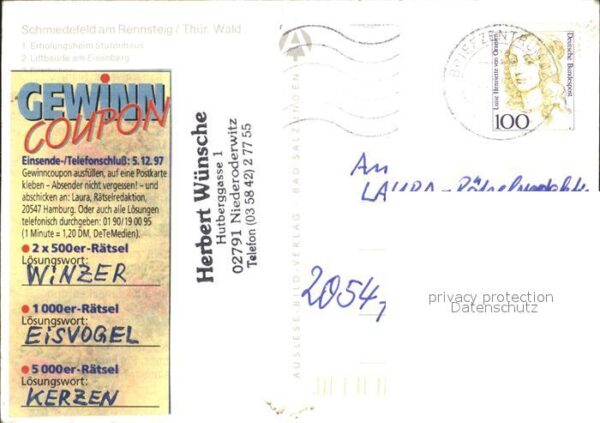 Schmiedefeld am Rennsteig / Thür. Wald
1 Erholungsheim Stutenhaus
2 Liftbaude am Eisenberg
GEWINN
COUPON
Einsende-/Telefonschluß: 5.12.97
Gewinncoupon ausfüllen, auf eine Postkarte
kleben – Absender nicht vergessen! – und
abschicken an: Laura, Rätselredaktion,
20547 Hamburg. Oder auch alle Lösungen
telefonisch durchgeben: 01 90/19 00 95
(1 Minute = 1,20 DM, DeTeMedien).
2 x 500er-Rätsel
Lösungswort:
WINZER
1 000er-Rätsel
Lösungswort:
EISVOGEL
5 000er-Rätsel
Lösungswort:
KERZEN
Herbert Wünsche
Hutberggasse 1
02791 Niederoderwitz
Telefon (03 58 42) 2 77 55
AUSLESE-BILD-VERLAG · BAD SALZUNGEN
A
BRIEFZENTRUM
Deutsche Bundespost
Luise Henriette von Oranien
100
An
LAURA-
20547
privacy protection
Datenschutz